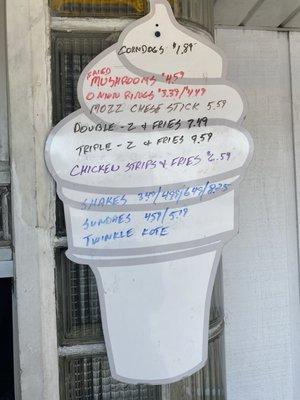 CORNDOGS $1.89
FRIED
MUSHROOMS $4.59
ONION RINGS $3.39/4.49
MOZZ CHESE STICK 5.59
DOUBLE - Z & FRIES 7.49
TRIPLE - Z & FRIES 9.59
CHICKEN STRIPS & FRIES $2.59
SHAKES 3.99/4.99/6.49/8.25
SUNDAES 4.59/5.19
TWINKLE KOTE